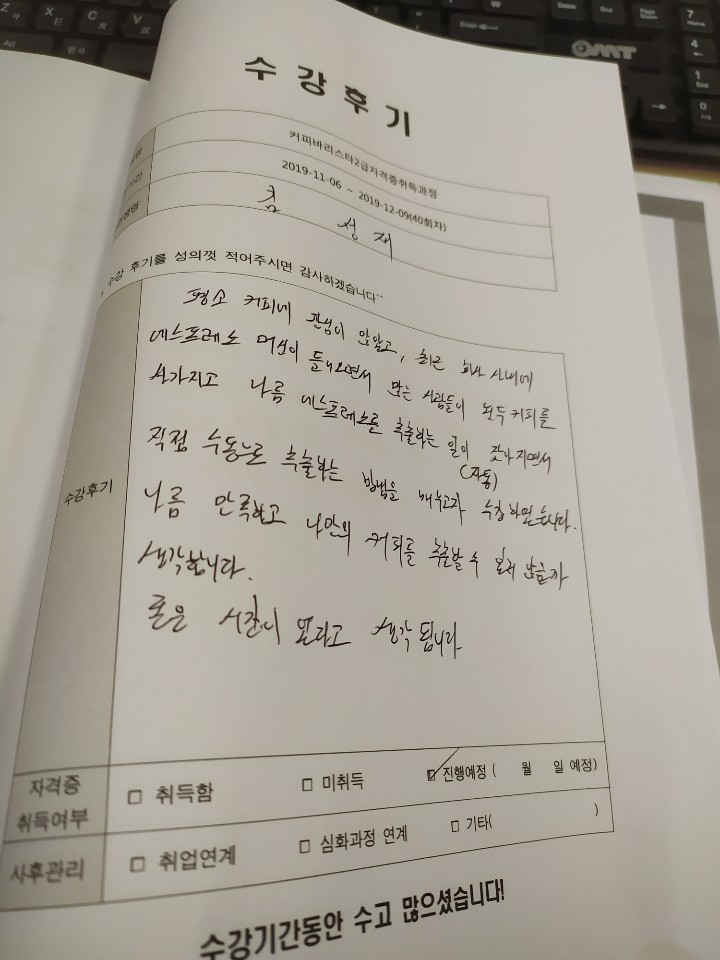 수강후기
커피바리스타2급자격증취득과정
기간 2019-11-06 ~ 2019-12-09(40회차)
성재
수강 후기를 성의껏 적어주시면 감사하겠습니다^^
평소 커피에 관심이 많았고, 최근 회사 사내에
에스프레소 머신이 들어오면서 많은 사람들이 모두 커피를
사가지고 나름 에스프레소를 추출하는 일이 잦아지면서
(자동)
직접 수동으로 추출하는 방법을 배우고자 수강하였습니다.
나름 만족하고 나만의 커피를 추출할 수 있지 않을까
생각합니다.
좋은 시간이 였다고 생각됩니다
수강후기
자격증 취득여부 □ 취득함 □ 미취득 ☑ 진행예정 ( 월 일 예정)
사후관리 □ 취업연계 □ 심화과정 연계 □ 기타( )
수강기간동안 수고 많으셨습니다!
OMT